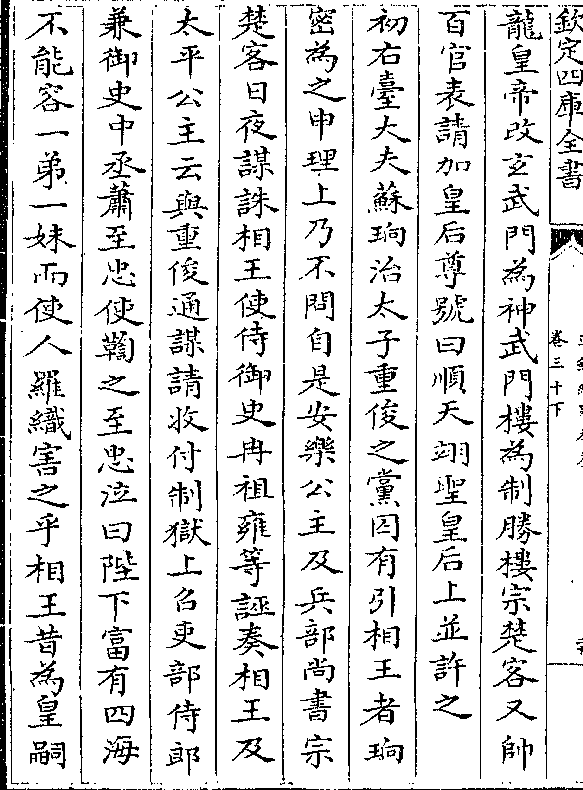 欽定四庫全書
卷三十下
龍皇帝改玄武門為神武門樓為制勝樓宗楚客又帥
百官表請加皇后尊號曰順天翊聖皇后上並許之
初右臺大夫蘇珦治太子重俊之黨囚有引相王者珦
密為之申理上乃不問自是安樂公主及兵部尚書宗
楚客日夜謀誅相王使侍御史冉祖雍等誣奏相王及
太平公主云與重俊通謀請收付制獄上召吏部侍郎
兼御史中丞蕭至忠使鞫之至忠泣曰陛下富有四海
不能容一弟一妹而使人羅織害之乎相王昔為皇嗣